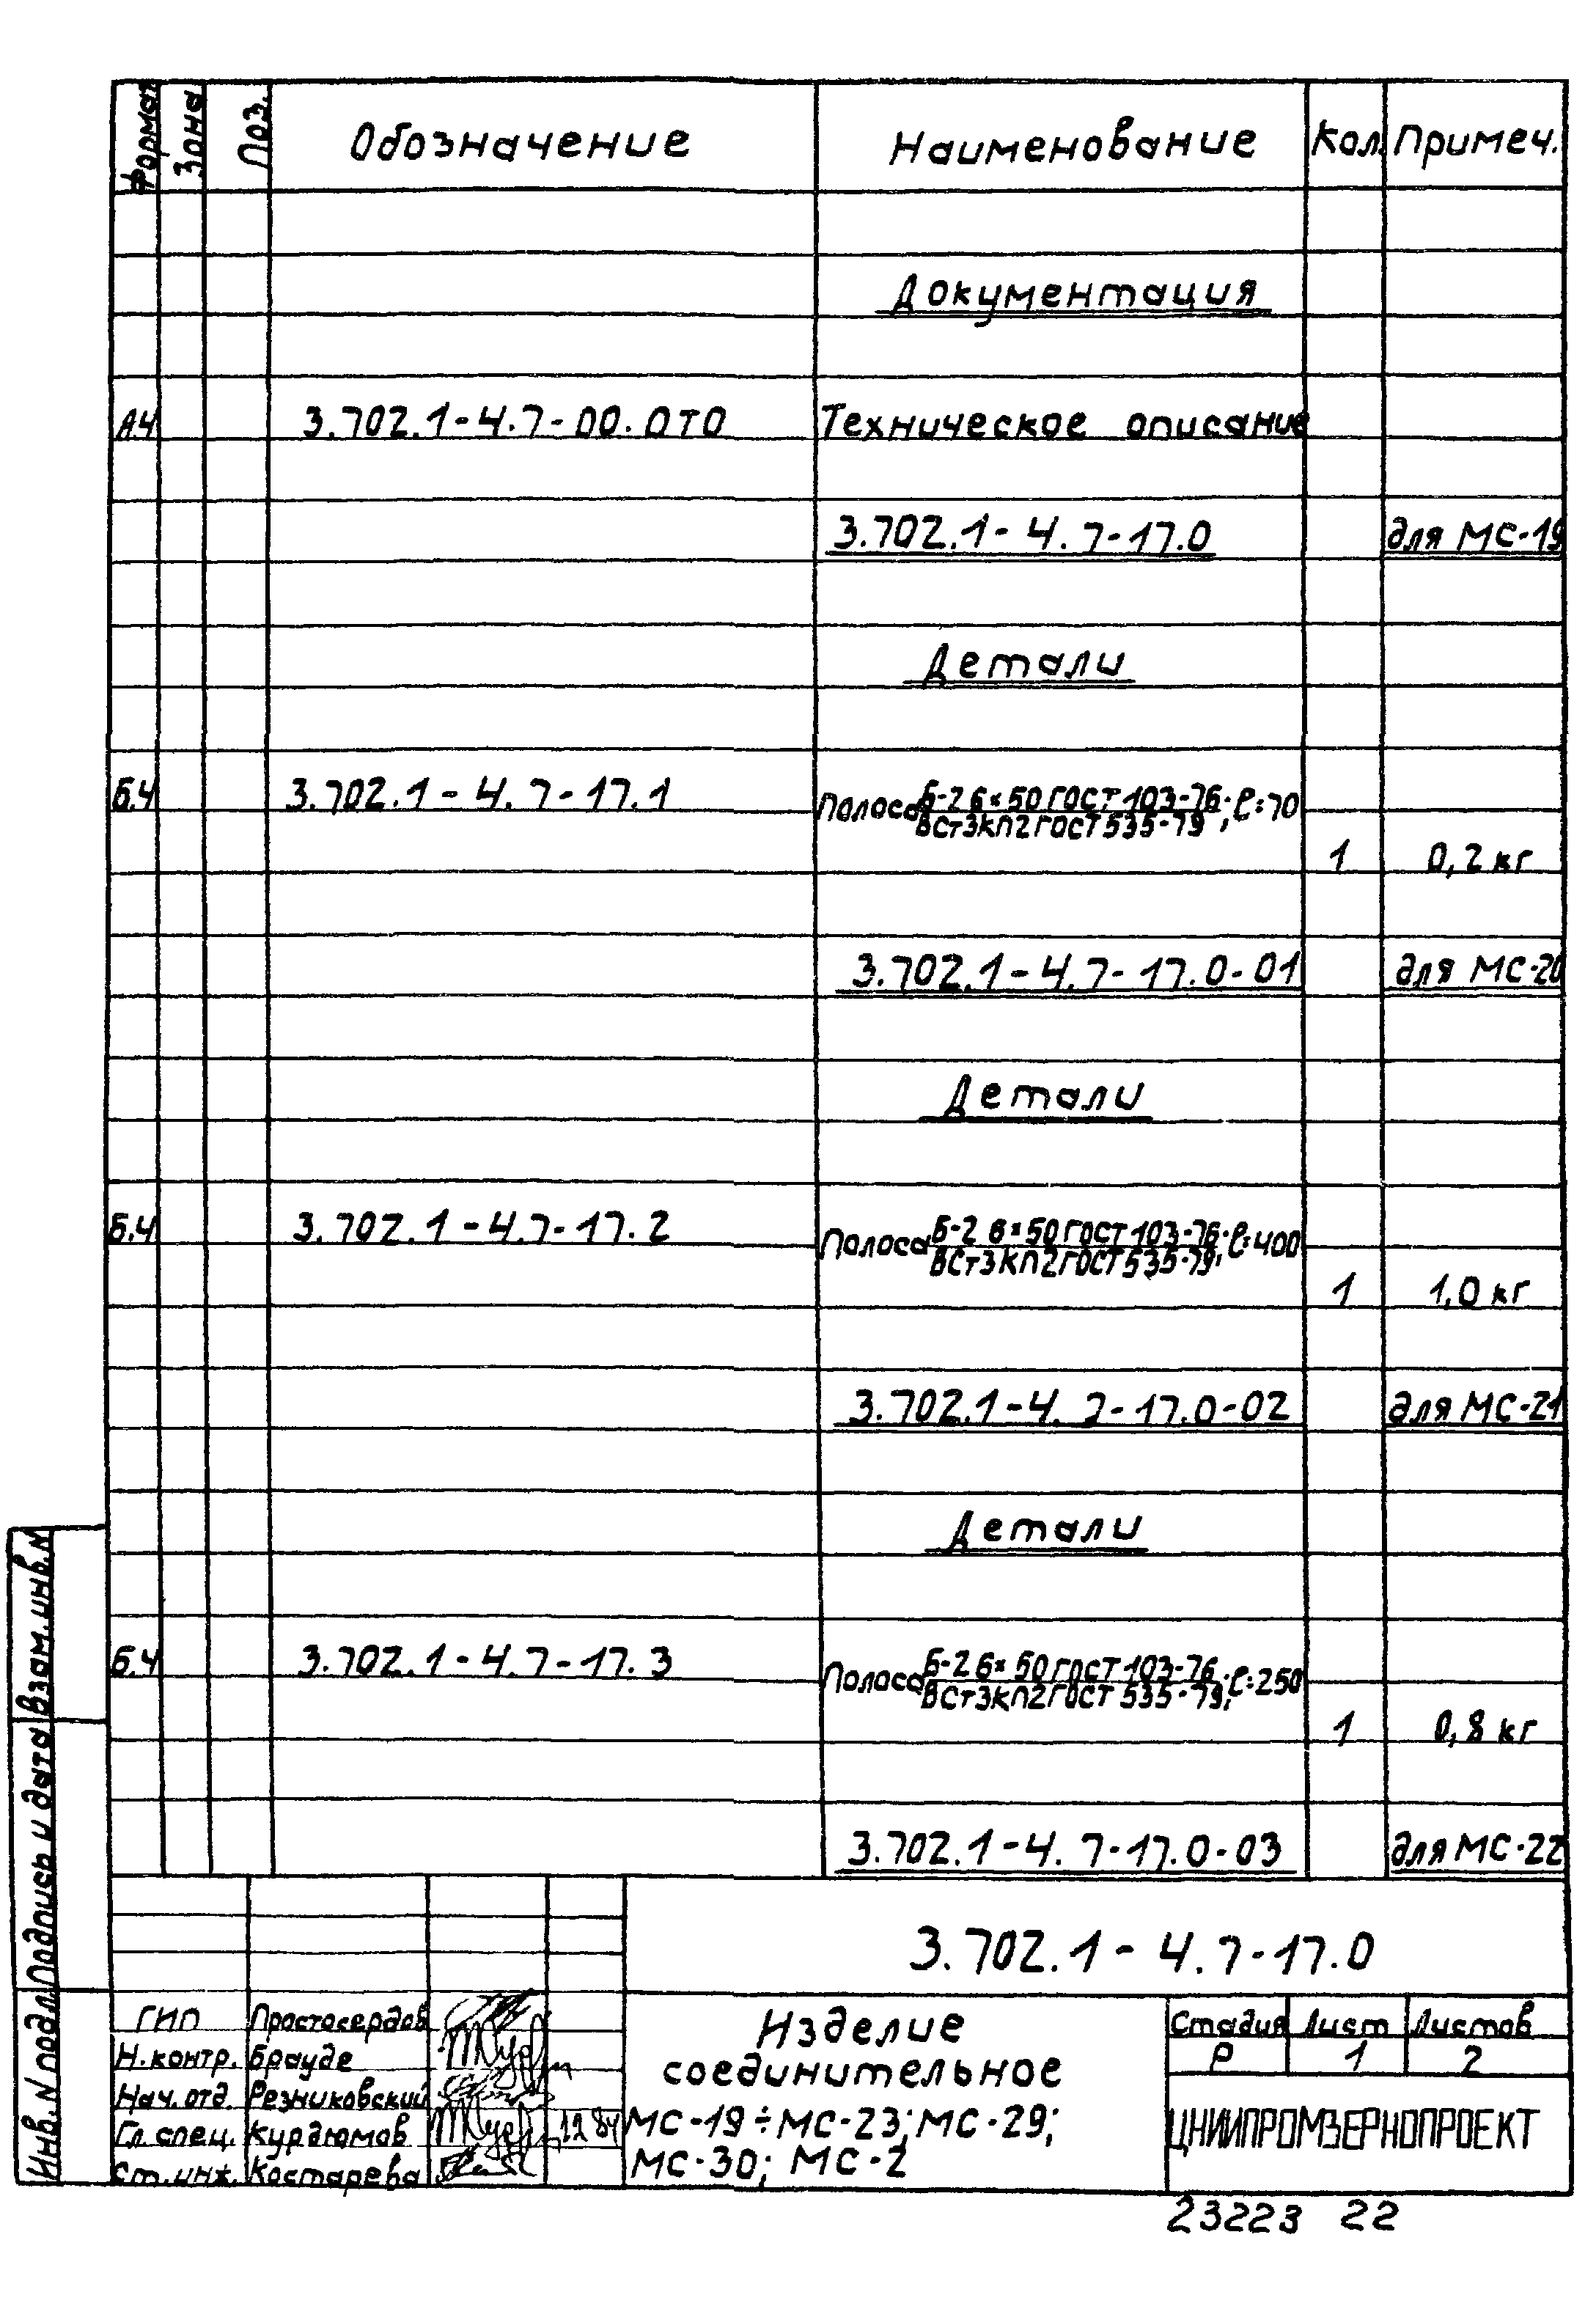 Формат Зона Поз. Обозначение Наименование Кол. Примеч.
Документация
А4 3.702.1-4.7-00.0ТО Техническое описание
3.702.1-4.7-17.0 для МС-19
Детали
Б.Ч 3.702.1-4.7-17.1 Полоса Б-2 6×50 ГОСТ 103-76; ℓ=70
ВСт3кп2 ГОСТ 535-79
1 0,2 кг
3.702.1-4.7-17.0-01 для МС-20
Детали
Б.Ч 3.702.1-4.7-17.2 Полоса Б-2 6×50 ГОСТ 103-76; ℓ=400
ВСт3кп2 ГОСТ 535-79
1 1,0 кг
3.702.1-4.7-17.0-02 для МС-21
Детали
Б.Ч 3.702.1-4.7-17.3 Полоса Б-2 6×50 ГОСТ 103-76; ℓ=250
ВСт3кп2 ГОСТ 535-79
1 0,8 кг
3.702.1-4.7-17.0-03 для МС-22
Взам. инв. N
Подпись и дата
Инв. N подл.
3.702.1-4.7-17.0
ГИП Простосердов
Н.контр. Брауде
Нач. отд. Резниковский
Гл. спец. Курдюмов 12.84
Ст. инж. Костарева
Изделие
соединительное
МС-19÷МС-23; МС-29;
МС-30; МС-2
Стадия Лист Листов
Р 1 2
ЦНИИПРОМЗЕРНОПРОЕКТ
23223 22